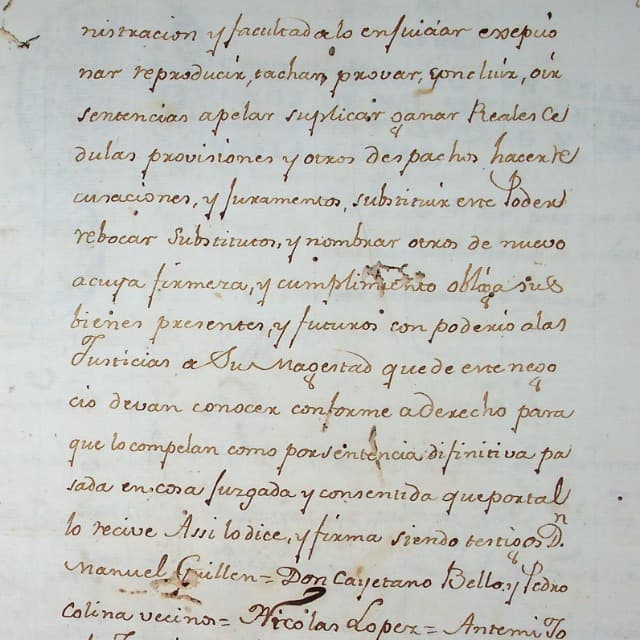 nistracion y facultad a lo enjuiciar expecio
nar reproducir, tachar, provar, concluir, oir
sentencias apelar suplicar ganar Reales Ce
dulas provisiones y otros despachos hacer re
cusaciones, y Juramentos, substituir este Poder
rebocar Substitutos, y nombrar otros de nuevo
a cuya firmeza, y cumplimiento obliga sus
bienes presentes, y futuros con poderio a las
Justicias de Su Magestad que de este nego
cio devan conocer conforme a derecho para
que lo compelan como por sentencia difinitiva pa
sada en cosa Juzgada y consentida que por tal
lo recive Assi lo dice, y firma siendo testigos Dn.
Manuel Guillen = Don Cayetano Bello, y Pedro
Colina vecinos = Nicolas Lopez = Antemi Jo